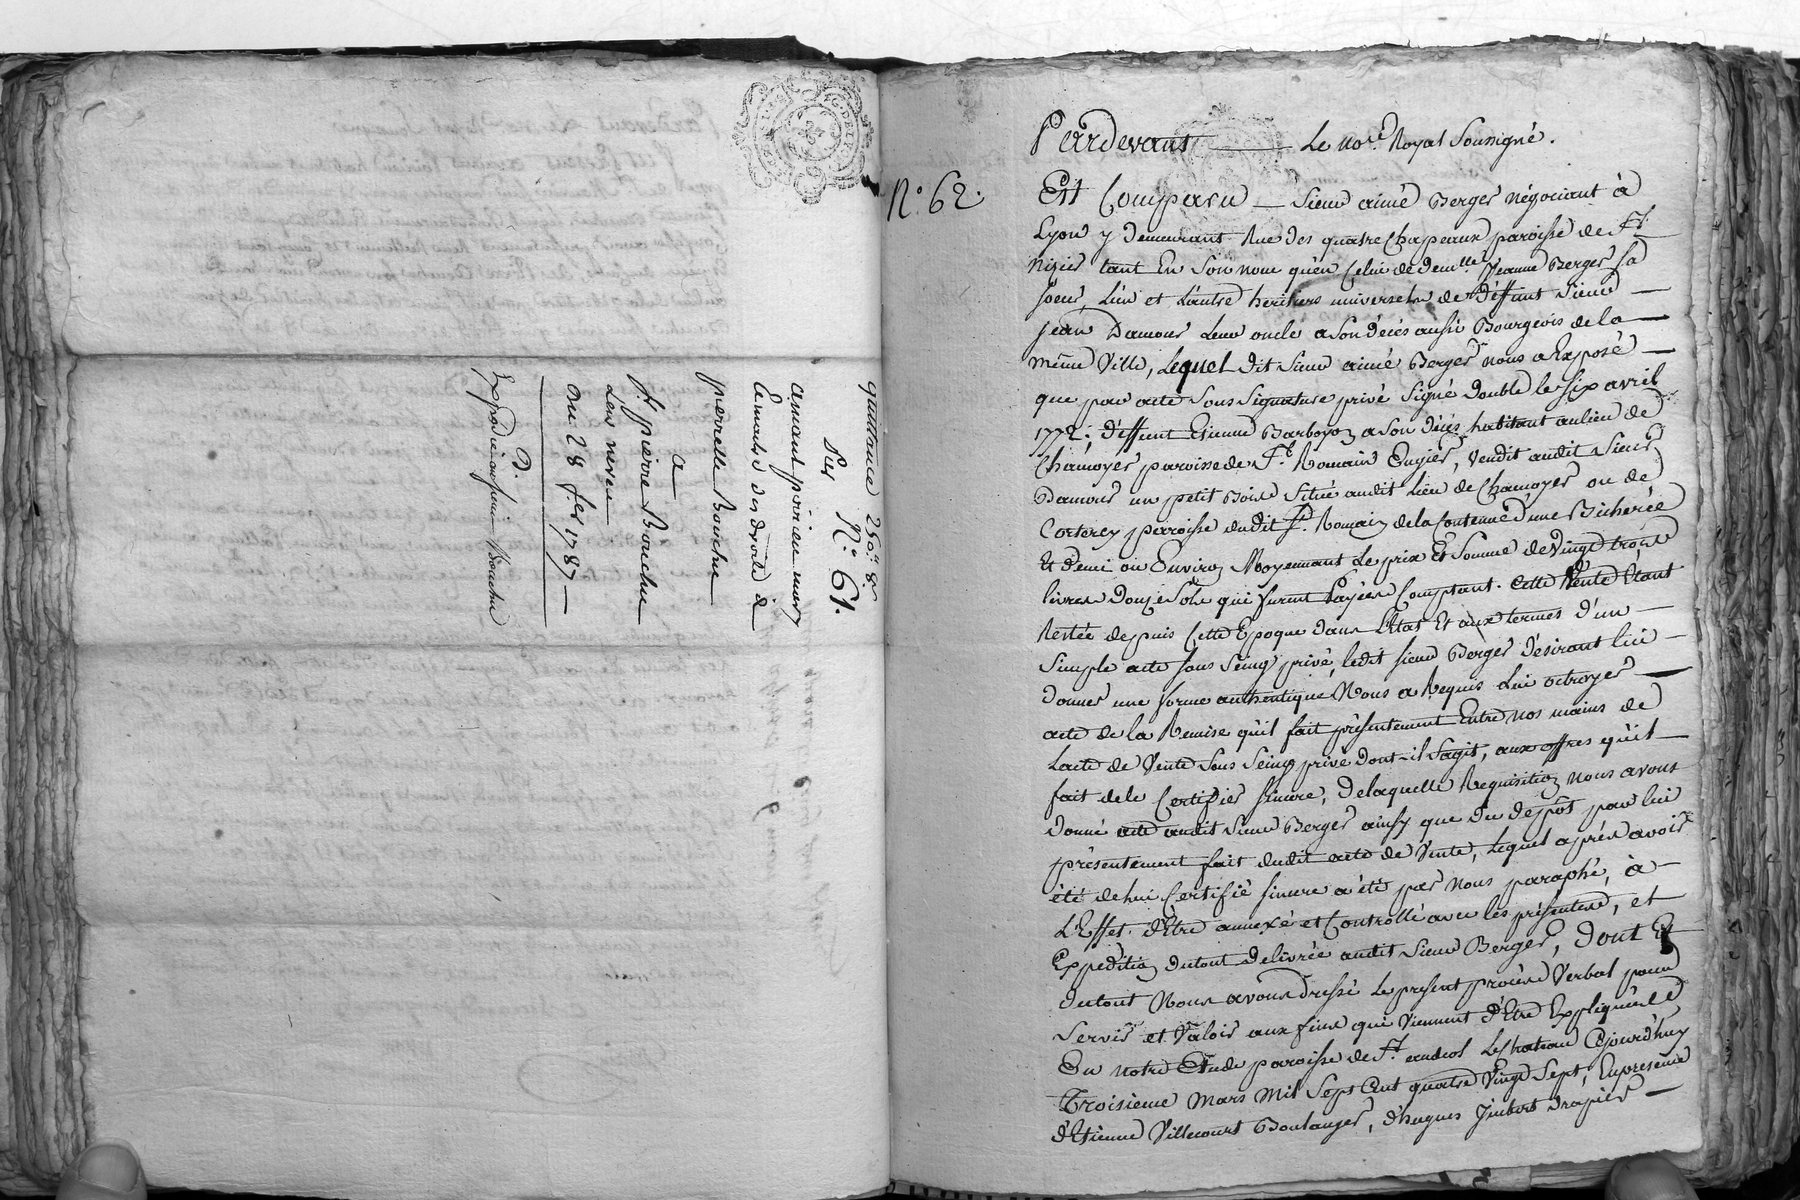 quittance 250ll &c
N.o 61.
Par
amant périer mary
& maitre des droits de
pierrette Bouchu
a
St pierre Bouchu
Leur neveu
Du 28 fer 1787
D.
Expédié au sieur Bouchu
Pardevant Le nore. Royal Soussigné.
N.o 62.
Est Comparu Sieur aimé Berger négociant à
Lyon y demeurant Rue des quatre Chapeaux paroisse de St.
Nizier tant En Son nom qu'en Celui de demlle Jeanne Berger sa
Soeur, L'un et L'autre heritiers universels de déffunt Sieur
jean Damour Leur oncle a Son décés aussi Bourgeois de la
même Ville, Lequel dit Sieur aimé Berger nous a Exposé
que par acte Sous Signature privé Signé double le Six avril
1772, déffunt Etienne Barboyon a Son décés habitant au lieu de
Chamoyer paroisse de St. Romain Engier, Vendit audit Sieur
Damour un petit Bois Situé audit Lieu de Chamoyer ou de
Corterey paroisse dudit St. Romain de la Contenue d'une Bicherée
Et demi ou Environ Moyennant Le prix Et Somme de Vingt trois
livres douze Sols qui furent Payées Comptant. Cette Vente Etant
Restée depuis Cette Epoque dans L'Etat Et aux termes d'un
Simple acte Sous Seing privé, ledit Sieur Berger désirant lui
donner une forme authentique Nous a Requis Lui octroyer
acte de la Remise qu'il fait présentement Entre nos mains de
Lacte de Vente Sous Seing privé dont-il Sagit, aux offres qu'il
fait de le Certifier Sincere, de laquelle Requisition nous avons
Donné acte audit Sieur Berger ainsy que du depôt par lui
présentement fait dudit acte de Vente, Lequel après avoir
été de lui Certifié Sincere a été par Nous paraphé, à
L'Effet d'Etre annexé et Controllé avec les présentes, et
Expédition du tout delivrée audit Sieur Berger, dont Et
du tout Nous avons Dressé Le present procès Verbal pour
Servir et Valoir aux fins qui Viennent d'Etre Expliquées
En notre Etude paroisse de St. andeol LeChateau Cejourd'huy
Troisieme Mars Mil Sept Cent quatre Vingt Sept, En presence
d'Etienne Villecourt Boulanger, d'hugues Jimbert Drapier